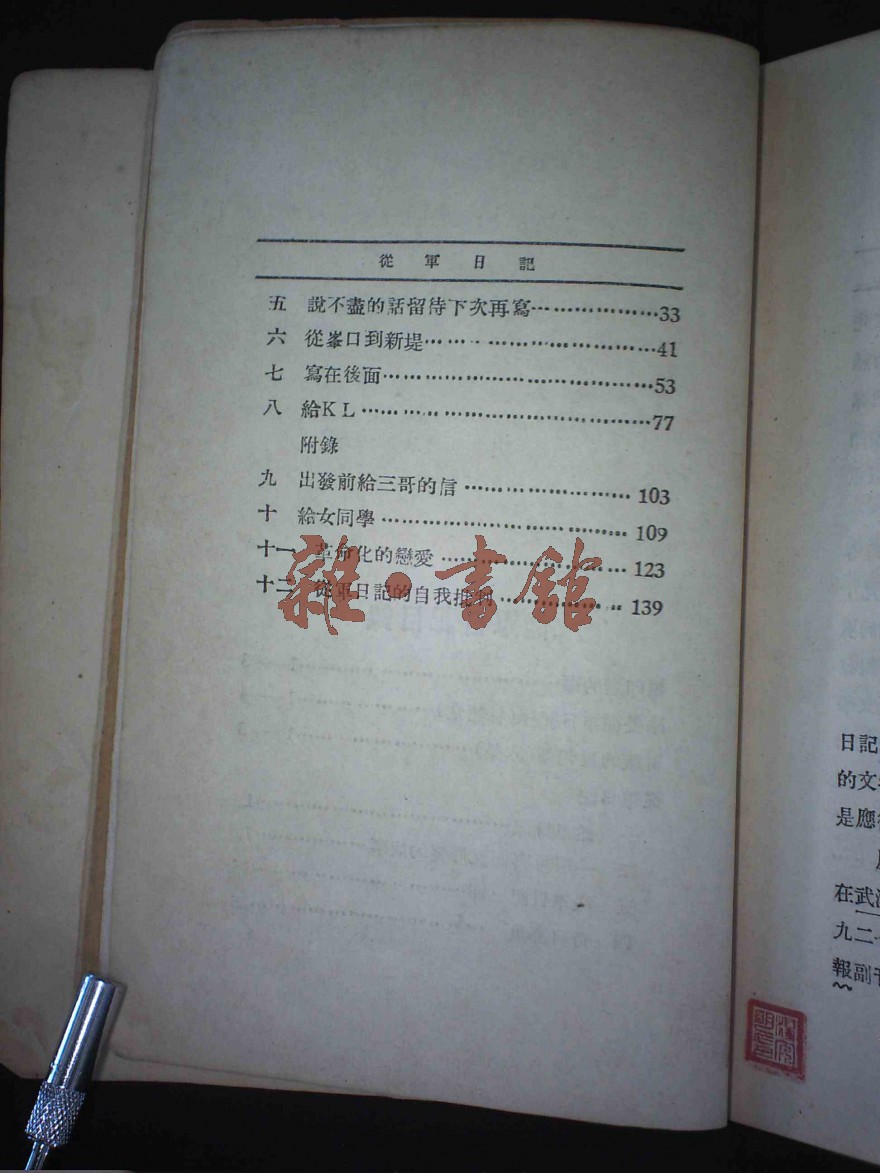 從軍日記
五 說不盡的話留待下次再寫………………33
六 從峯口到新堤………………41
七 寫在後面………………53
八 給KL………………77
附錄
九 出發前給三哥的信………………103
十 給女同學………………109
十一 革命化的戀愛………………123
十二 從軍日記的自我批判………………139
雜·書館
日記
的文
是應
在武漢
九二
報副刊